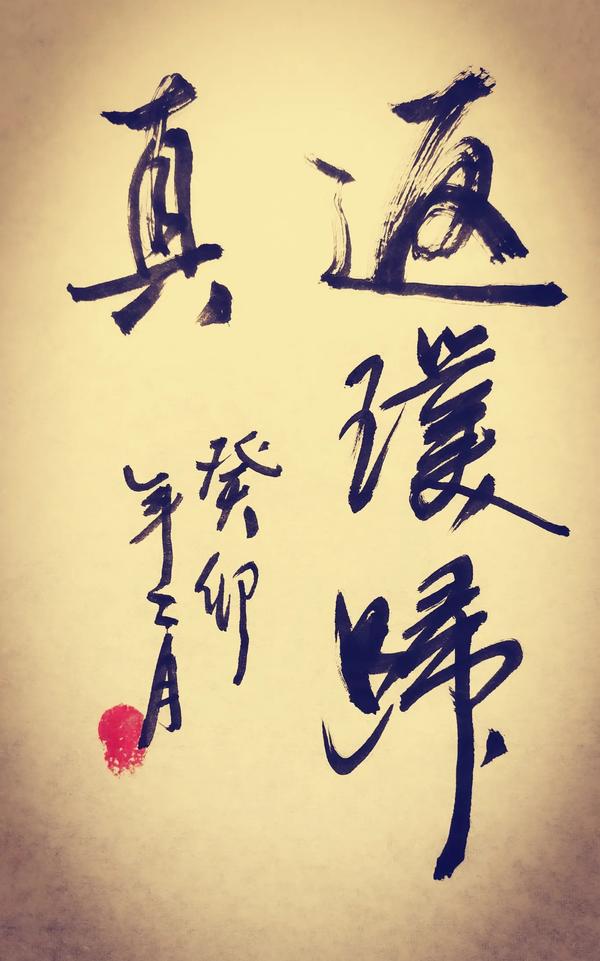 返璞歸
真
癸卯
年二月